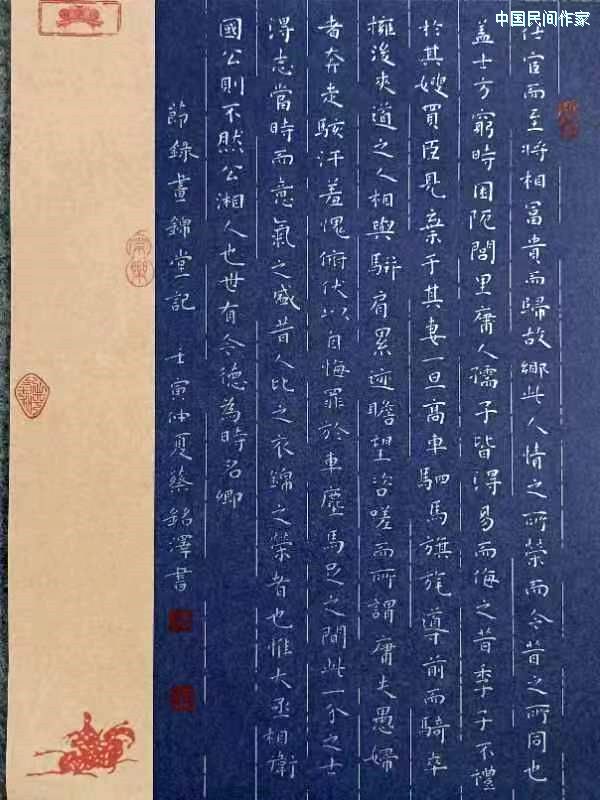 中国民间作家
仕宦而至將相冨貴而歸故鄉此人情之所榮而今昔之所同也
盖士方窮時困阨閭里庸人孺子皆得易而侮之昔季子不禮
於其嫂買臣見棄于其妻一旦髙車駟馬旗旄導前而騎卒
擁後夾道之人相與駢肩累迹瞻望咨嗟而所謂庸夫愚婦
者奔走駭汗羞愧俯伏以自悔罪於車塵馬足之間此一介之士
得志當時而意氣之盛昔人比之衣錦之榮者也惟大丞相衛
國公則不然公湘人也世有令德為時名卿
節錄晝錦堂記 壬寅仲夏蔡銘澤書